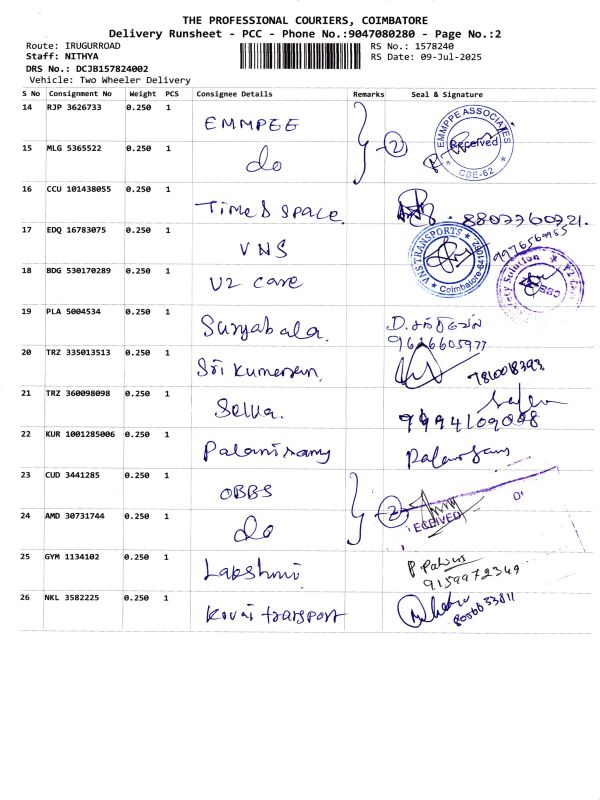 THE PROFESSIONAL COURIERS, COIMBATORE
Delivery Runsheet - PCC - Phone No.:9047080280 - Page No.:2
Route: IRUGURROAD
RS No.: 1578240
Staff: NITHYA
RS Date: 09-Jul-2025
DRS No.: DCJB157824002
Vehicle: Two Wheeler Delivery
S No Consignment No Weight PCS Consignee Details Remarks Seal & Signature
14 RJP 3626733 0.250 1 EMMPEE
EMMPPE ASSOCIATES Received CBE-62
15 MLG 5365522 0.250 1 do 2
16 CCU 101438055 0.250 1 Time & space
17 EDQ 16783075 0.250 1 VNS
VNS TRANSPORTS Coimbatore-641062
9976560965
18 BDG 530170289 0.250 1 V2 care
19 PLA 5004534 0.250 1 Suryabala.
20 TRZ 335013513 0.250 1 Sri Kumeran.
21 TRZ 360098098 0.250 1 Selva.
22 KUR 1001285006 0.250 1 Palanisamy
23 CUD 3441285 0.250 1 OBBS
24 AMD 30731744 0.250 1 do 2
25 GYM 1134102 0.250 1 Lakshmi
9159972349
26 NKL 3582225 0.250 1 Kovai transport
8056633811